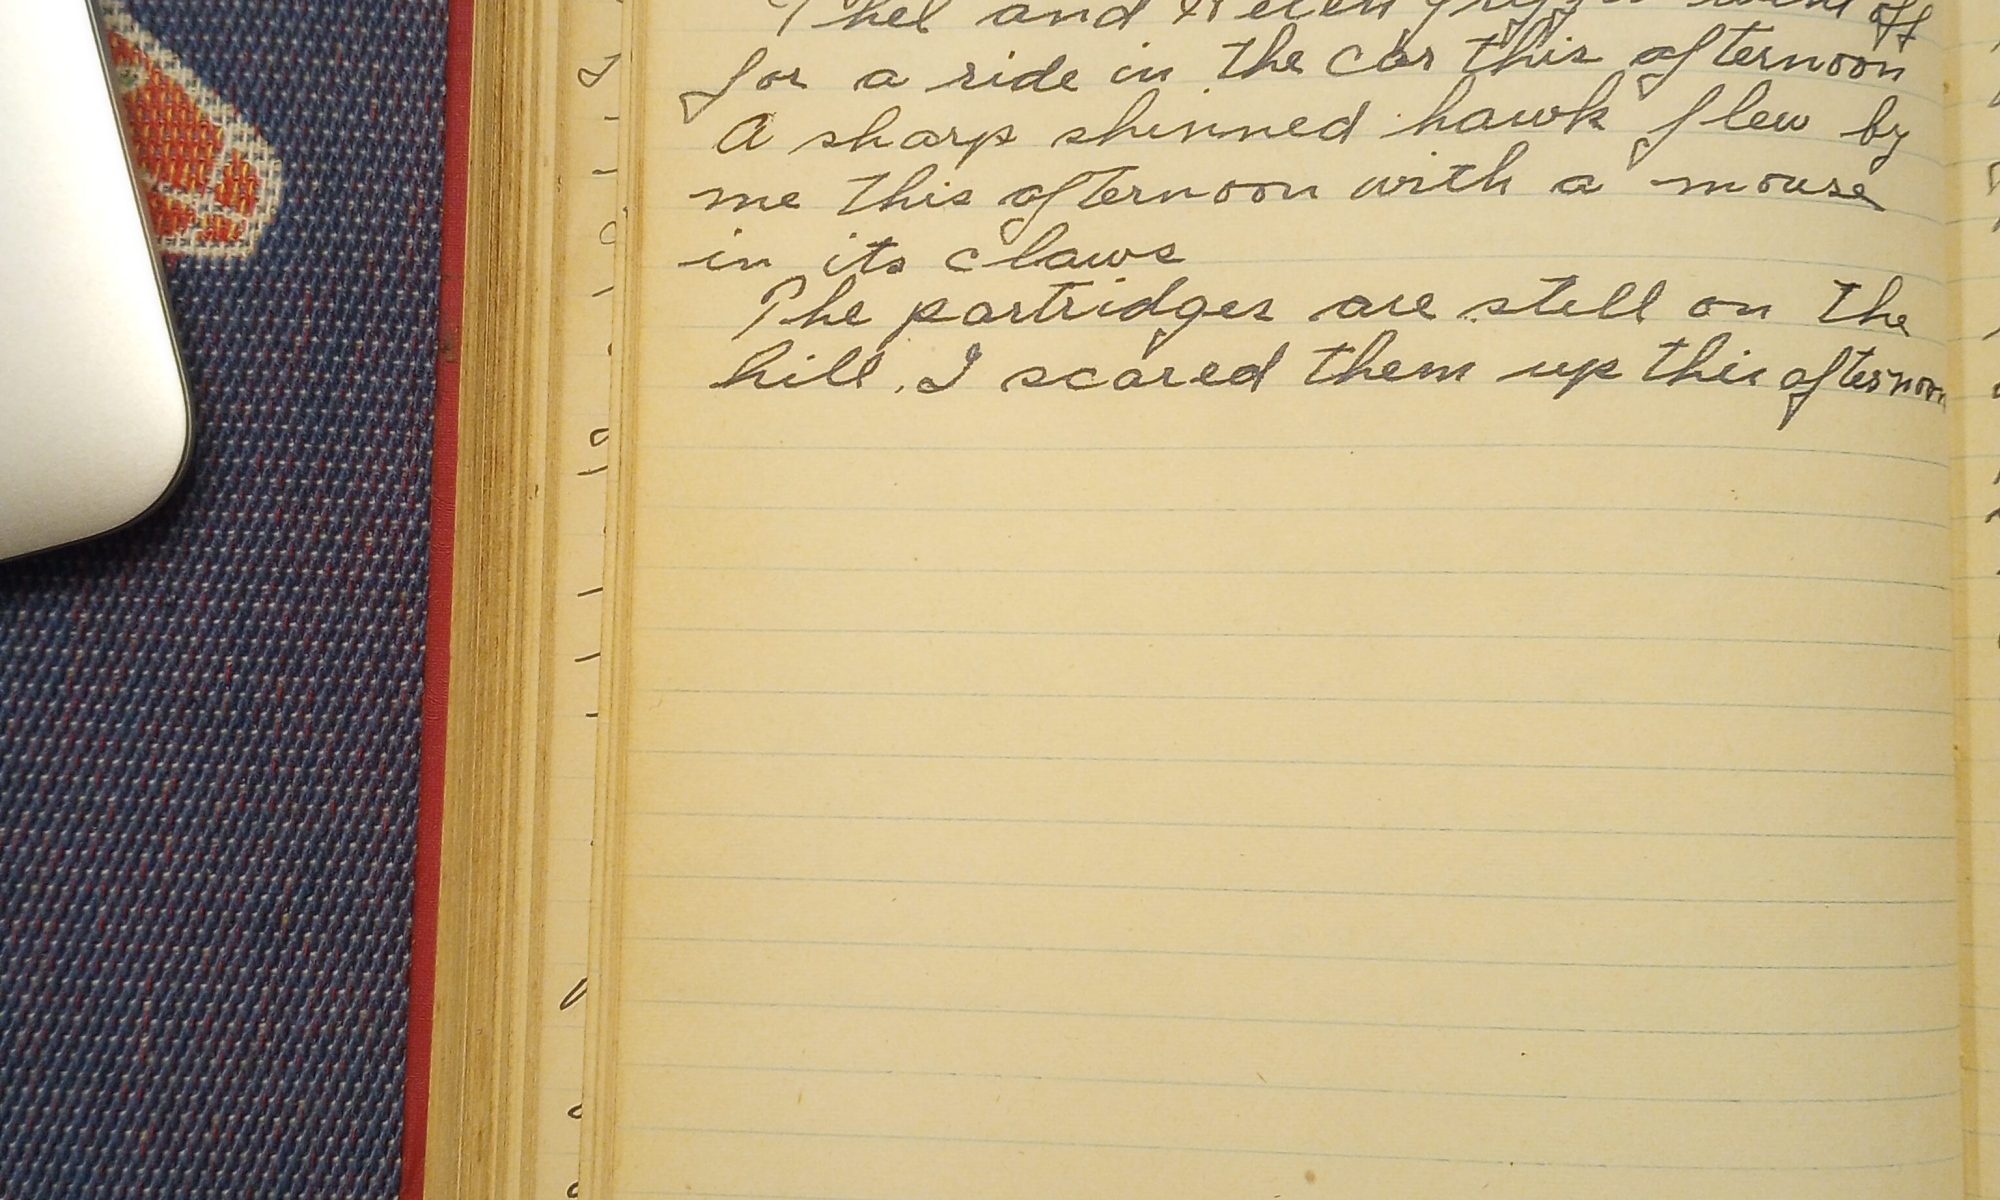 Thel and Helen went off
for a ride in the car this afternoon
A sharp shinned hawk flew by
me this afternoon with a mouse
in its claws
The partridges are still on the
hill. I scared them up this afternoon